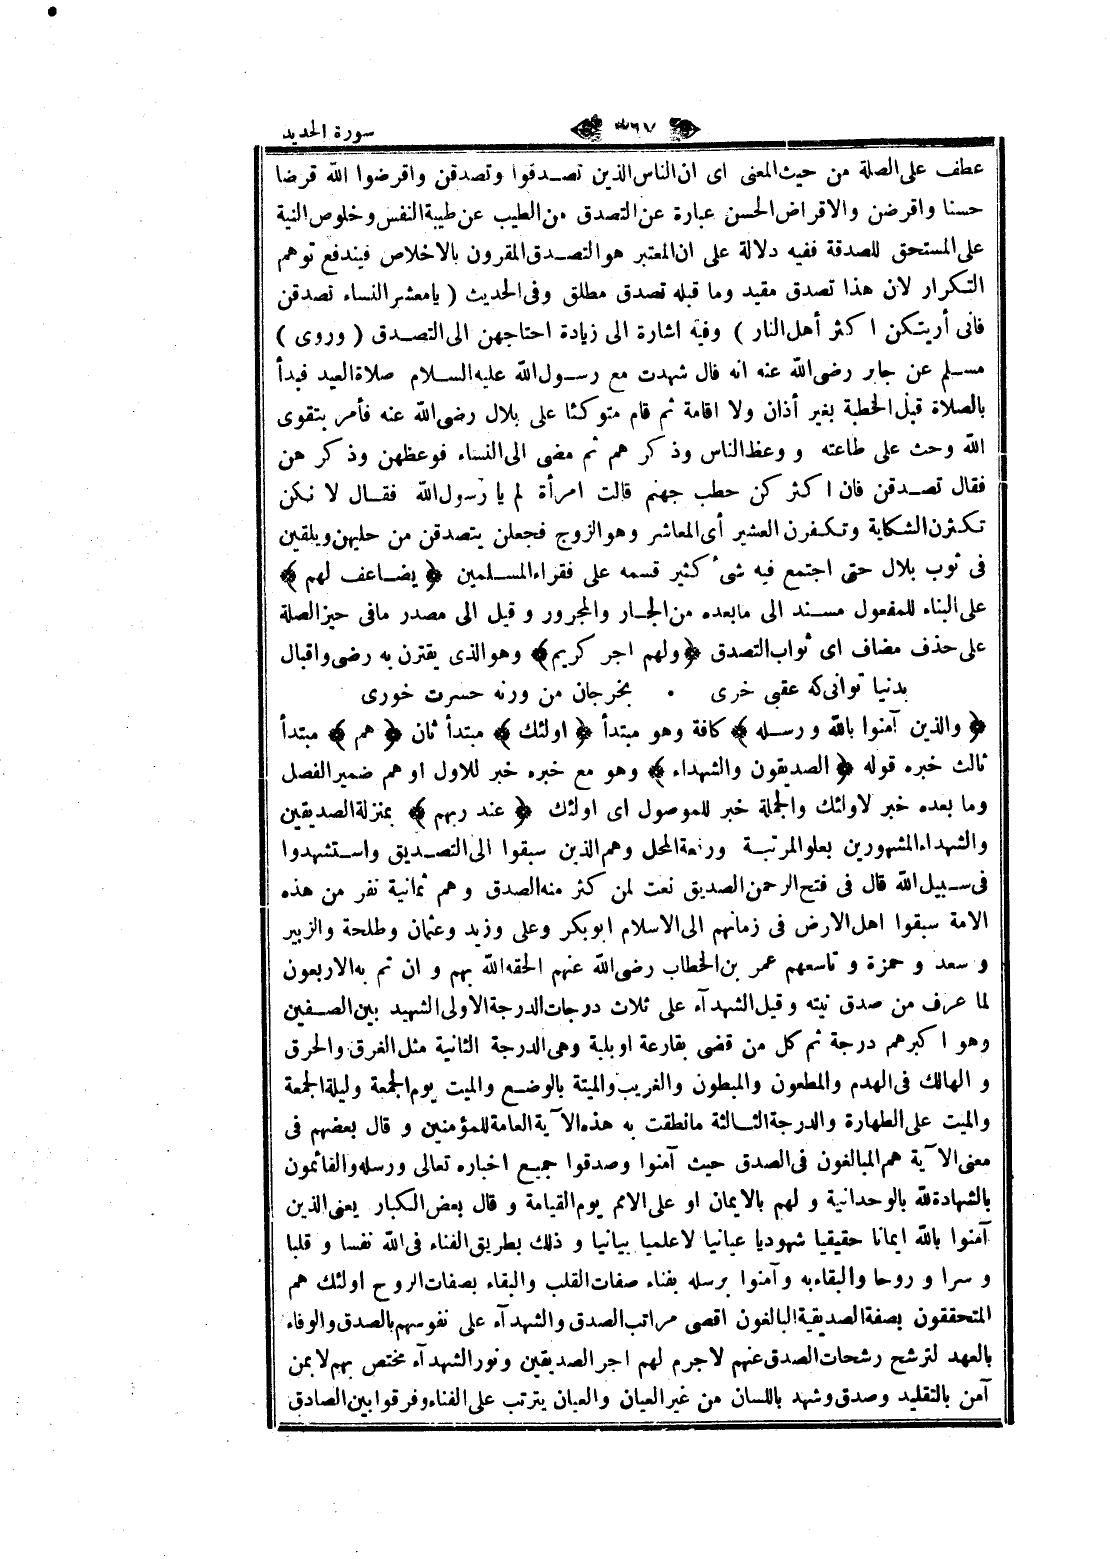 سورة الحديد
٣٦٧
عطف على الصلة من حيث المعنى اى ان الناس الذين تصدقوا وتصدقن واقرضوا الله قرضا
حسنا واقرضن والاقراض الحسن عبارة عن التصدق من الطيب عن طيبة النفس وخلوص النية
على المستحق للصدقة ففيه دلالة على ان المعتبر هو التصدق المقرون بالاخلاص فيندفع توهم
التكرار لان هذا تصدق مقيد وما قبله تصدق مطلق وفى الحديث ( يامعشر النساء تصدقن
فانى أريتكن اكثر أهل النار ) وفيه اشارة الى زيادة احتاجهن الى التصدق ( وروى )
مسلم عن جابر رضى الله عنه انه قال شهدت مع رسول الله عليه السلام صلاة العيد فبدأ
بالصلاة قبل الخطبة بغير أذان ولا اقامة ثم قام متوكئا على بلال رضى الله عنه فأمر بتقوى
الله وحث على طاعته و وعظ الناس وذكر هم ثم مضى الى النساء فوعظهن وذكر هن
فقال تصدقن فان اكثر كن حطب جهنم قالت امرأة لم يا رسول الله فقال لا نكن
تكثرن الشكاية وتكفرن العشير أى المعاشر وهو الزوج فجعلن يتصدقن من حليهن ويلقين
فى ثوب بلال حتى اجتمع فيه شئ كثير قسمه على فقراء المسلمين ﴿ يضاعف لهم ﴾
على البناء للمفعول مسند الى مابعده من الجار والمجرور و قيل الى مصدر مافى حيز الصلة
على حذف مضاف اى ثواب التصدق ﴿ ولهم اجر كريم ﴾ وهو الذى يقترن به رضى واقبال
بدنيا توانى كه عقبى خرى . بخرجان من ورنه حسرت خورى
﴿ والذين آمنوا بالله ورسله ﴾ كافة وهو مبتدأ ﴿ اولئك ﴾ مبتدأ ثان ﴿ هم ﴾ مبتدأ
ثالث خبره قوله ﴿ الصديقون والشهداء ﴾ وهو مع خبره خبر للاول او هم ضمير الفصل
وما بعده خبر لاولئك والجملة خبر للموصول اى اولئك ﴿ عند ربهم ﴾ بمنزلة الصديقين
والشهداء المشهورين بعلو المرتبة ورفعة المحل وهم الذين سبقوا الى التصديق واستشهدوا
فى سبيل الله قال فى فتح الرحمن الصديق نعت لمن كثر منه الصدق وهم ثمانية نفر من هذه
الامة سبقوا اهل الارض فى زمانهم الى الاسلام ابوبكر وعلى وزيد وعثمان وطلحة والزبير
و سعد و حمزة و تاسعهم عمر بن الخطاب رضى الله عنهم الحقه الله بهم و ان تم به الاربعون
لما عرف من صدق نيته و قيل الشهدآء على ثلاث درجات الدرجة الاولى الشهيد بين الصفين
وهو اكبرهم درجة ثم كل من قضى بقارعة او بلية وهى الدرجة الثانية مثل الغرق والحرق
و الهالك فى الهدم والمطعون والمبطون والغريب والميتة بالوضع والميت يوم الجمعة وليلة الجمعة
والميت على الطهارة والدرجة الثالثة مانطقت به هذه الآية العامة للمؤمنين و قال بعضهم فى
معنى الآية هم المبالغون فى الصدق حيث آمنوا وصدقوا جميع اخباره تعالى ورسله والقائمون
بالشهادة لله بالوحدانية و لهم بالايمان او على الامم يوم القيامة و قال بعض الكبار يعنى الذين
آمنوا بالله ايمانا حقيقيا شهوديا عيانيا لا علميا بيانيا و ذلك بطريق الفناء فى الله نفسا و قلبا
و سرا و روحا والبقاء به وآمنوا برسله بفناء صفات القلب والبقاء بصفات الروح اولئك هم
المتحققون بصفة الصديقية البالغون اقصى مراتب الصدق والشهدآء على نفوسهم بالصدق والوفاء
بالعهد لترشح رشحات الصدق عنهم لاجرم لهم اجر الصديقين ونور الشهدآء مختص بهم لا بمن
آمن بالتقليد وصدق وشهد باللسان من غير العيان والعيان يترتب على الفناء وفرقوا بين الصادق